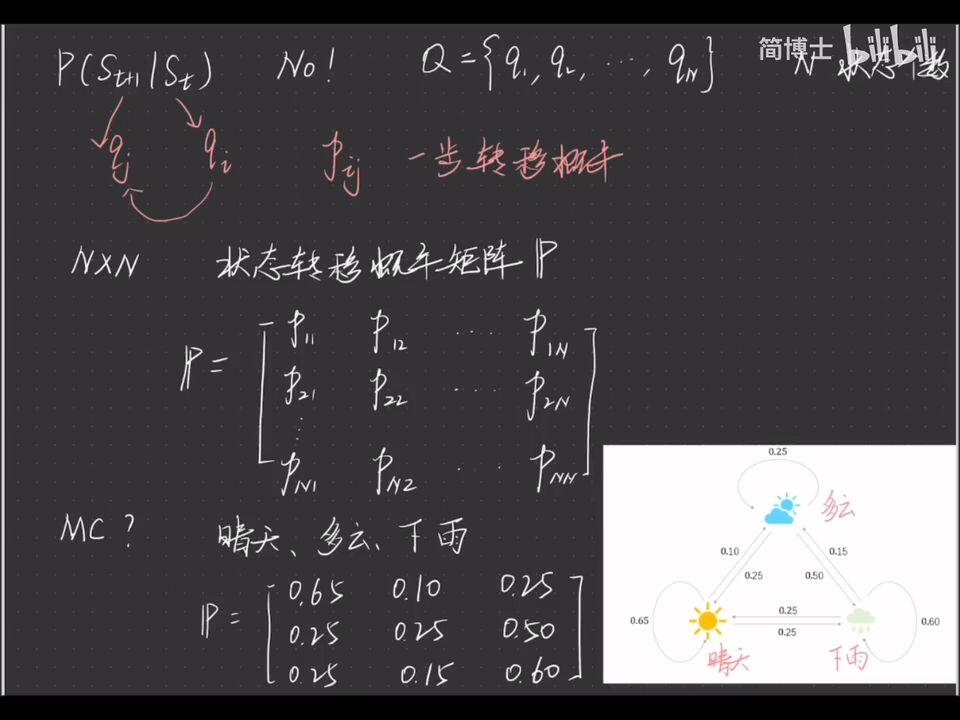 简博士 bilibili
P(S_{t+1}|S_t) No! Q={q_1, q_2, ..., q_N} N 状态个数
q_j q_i p_{ij} 一步转移概率
N×N 状态转移概率矩阵 ℙ
ℙ = [ p_{11} p_{12} ... p_{1N}
p_{21} p_{22} ... p_{2N}
⋮
p_{N1} p_{N2} ... p_{NN} ]
MC? 晴天、多云、下雨
ℙ = [ 0.65 0.10 0.25
0.25 0.25 0.50
0.25 0.15 0.60 ]
0.25
多云
0.10 0.15
0.25 0.50
0.65 0.25 0.60
0.25
晴天 下雨